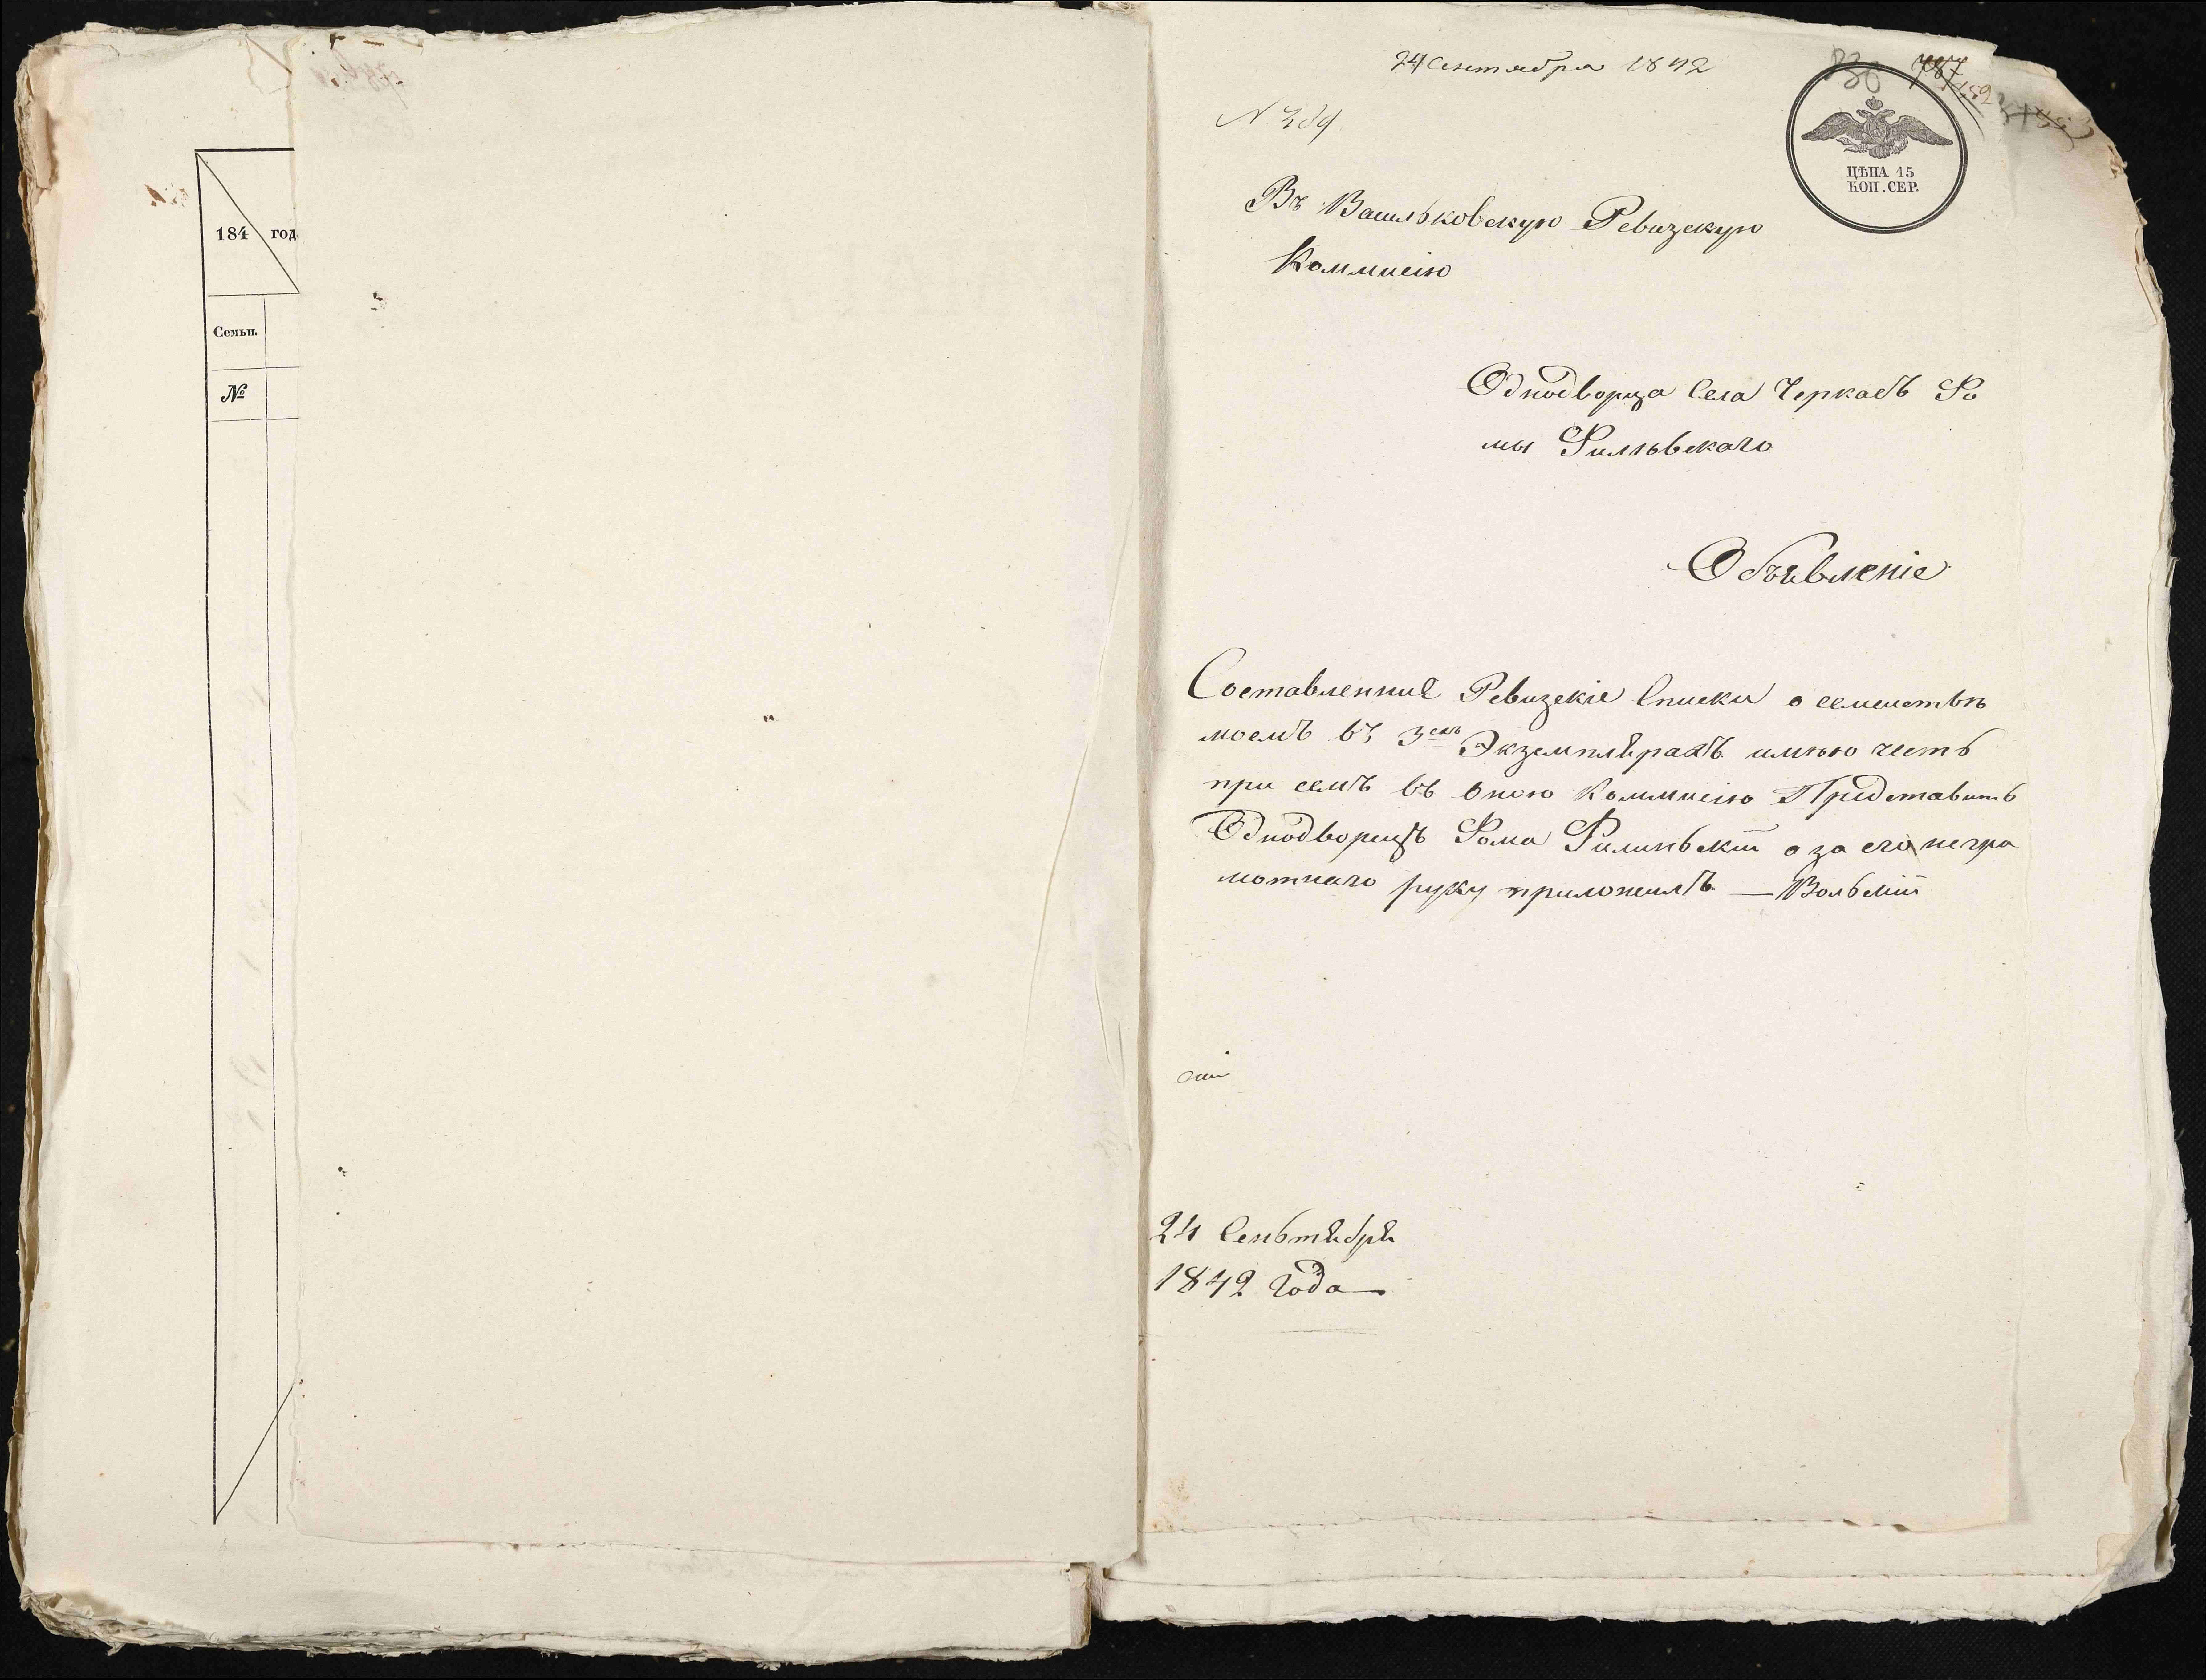 184 год
Семьи.
№
24 Сентября 1842
730 787
№ 389
ЦѢНА 15
КОП. СЕР.
Въ Васильковскую Ревизскую
Коммисію
Однодворца Села Черкасъ Фо
мы Филѣвскаго
Объявленіе
Составленние Ревизскіе Списки о семействѣ
моемъ въ 3ехъ Экземплярахъ имѣю честь
при семъ въ оною Коммисію Представить
Однодворецъ Фома Филинвскій а за его негра
мотнаго руку приложилъ — Вольскій
24 Сеньтября
1842 Года